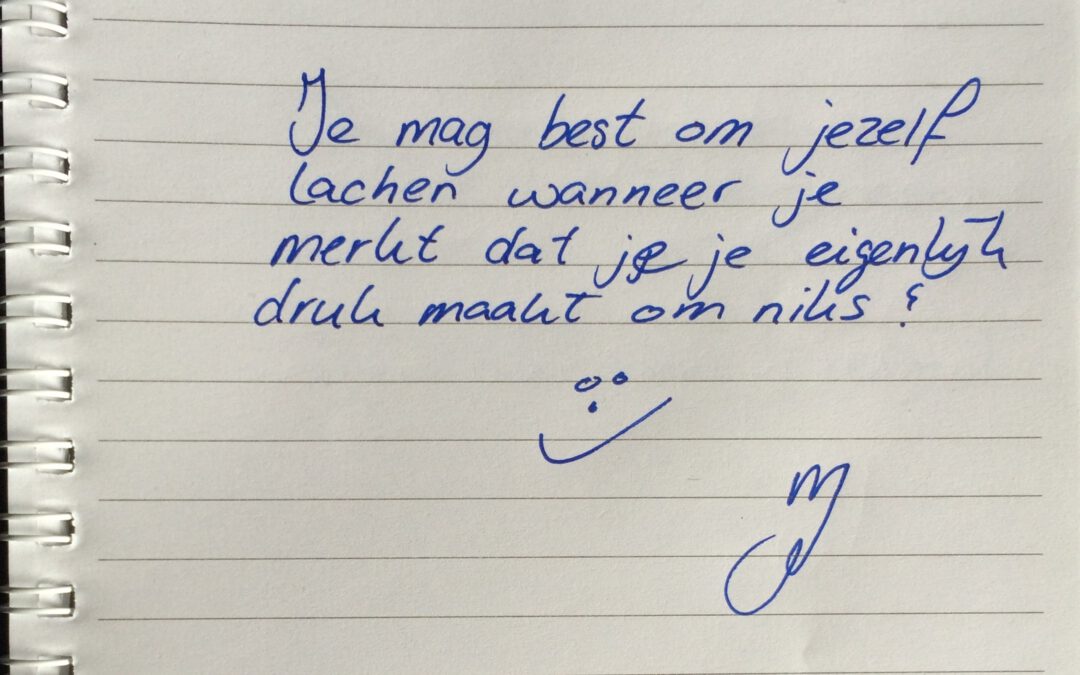 Je mag best om jezelf
lachen wanneer je
merkt dat je je eigenlijk
druk maakt om niks!
M